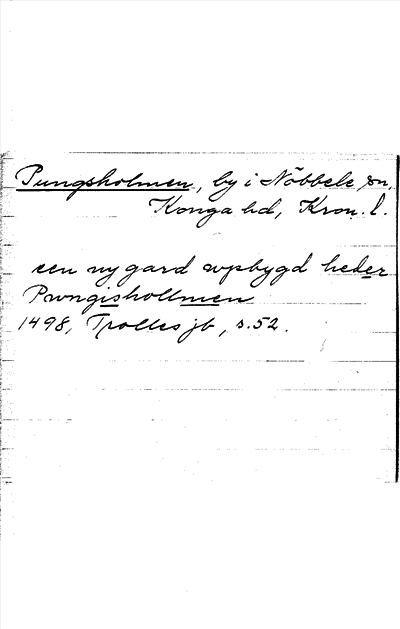 Pungsholmen, by i Nöbbele sn,
Konga hd, Kron. l.
een ny gard wpbygd heder
Pwngisholmen
1498, Trolles jb, s. 52.